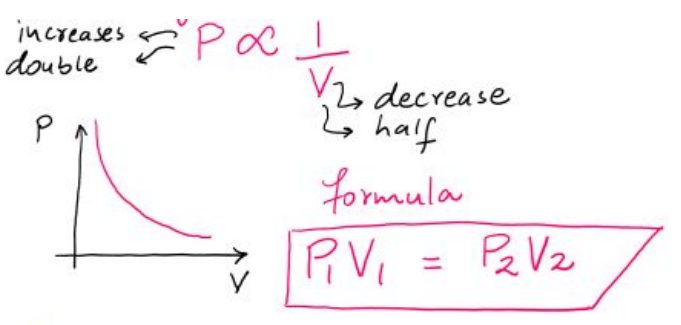 increases ← P ∝ 1/V
double ←
↳ decrease
↳ half
P
V
formula
P₁V₁ = P₂V₂